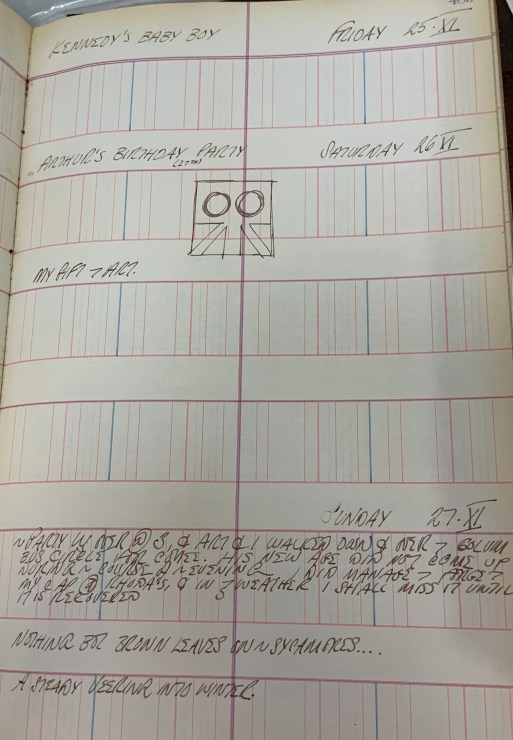 KENNEDY'S BABY BOY FRIDAY 25·XI
ARTHUR'S BIRTHDAY PARTY SATURDAY 26 XI
(27TH)
MY GIFT → ART.
SUNDAY 27·XI
PARTY W/ NER @ S, & ART & I WALKED DOWN & NER → COLUM
BUS CIRCLE FOR COFFEE. HIS NEW AGE DID NOT COME UP
COURSE EVENING. DID MANAGE → FORGET
MY CAP @ RHODA'S, & IN WEATHER I SHALL MISS IT UNTIL
IT IS RECOVERED
NOTHING BUT BROWN LEAVES ON SYCAMORES....
A STEADY VEERING INTO WINTER.